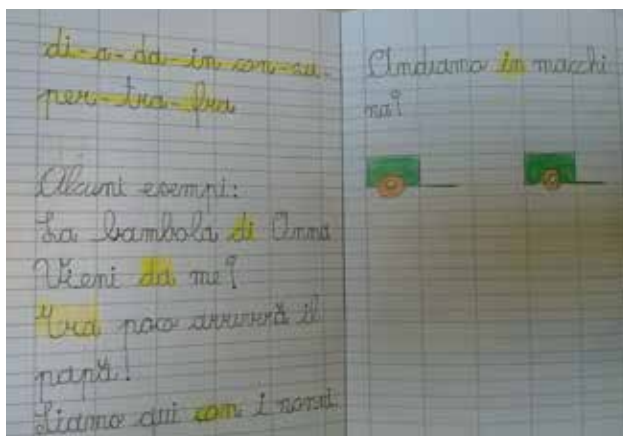 di-a-da-in-con-su-
per-tra-fra
Alcuni esempi:
La bambola di Anna
Vieni da me?
Tra poco arriverà il
papà!
Siamo qui con i nonni.
Andiamo in macchi
na?